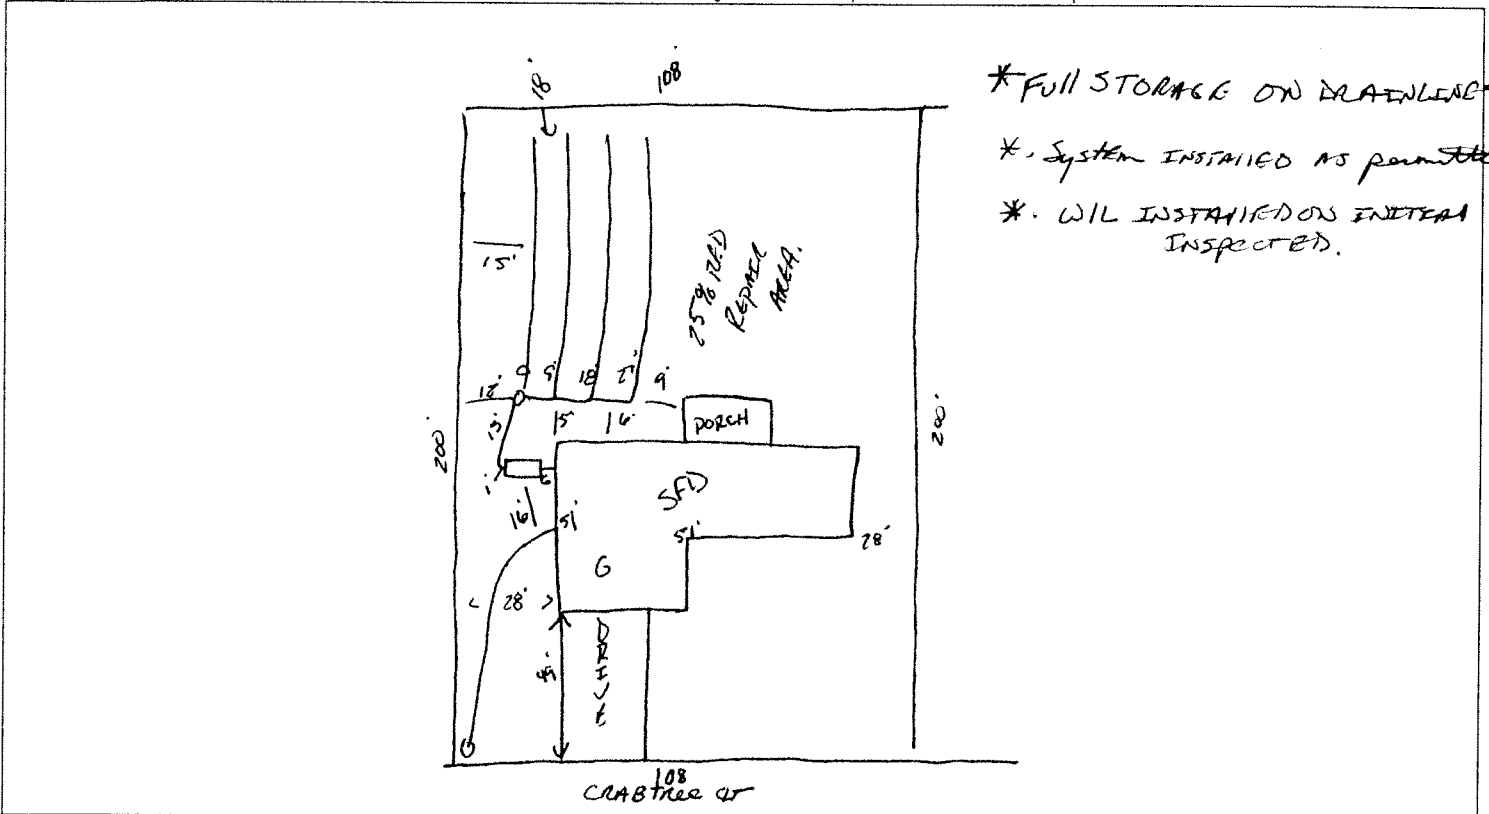 18'
108'
* FUll STORAGE ON DRAINLINE
*. System INSTAllED AS permitte
*. W/L INSTAllED ON INITIAl
INSPECTED.
15'
25% RED
REPAIR
AREA.
12'
5'
18'
9'
15'
15'
16'
PORCH
200'
200'
SFD
16'
51'
51'
28'
G
28'
DRIVE
108
CRABTree CT